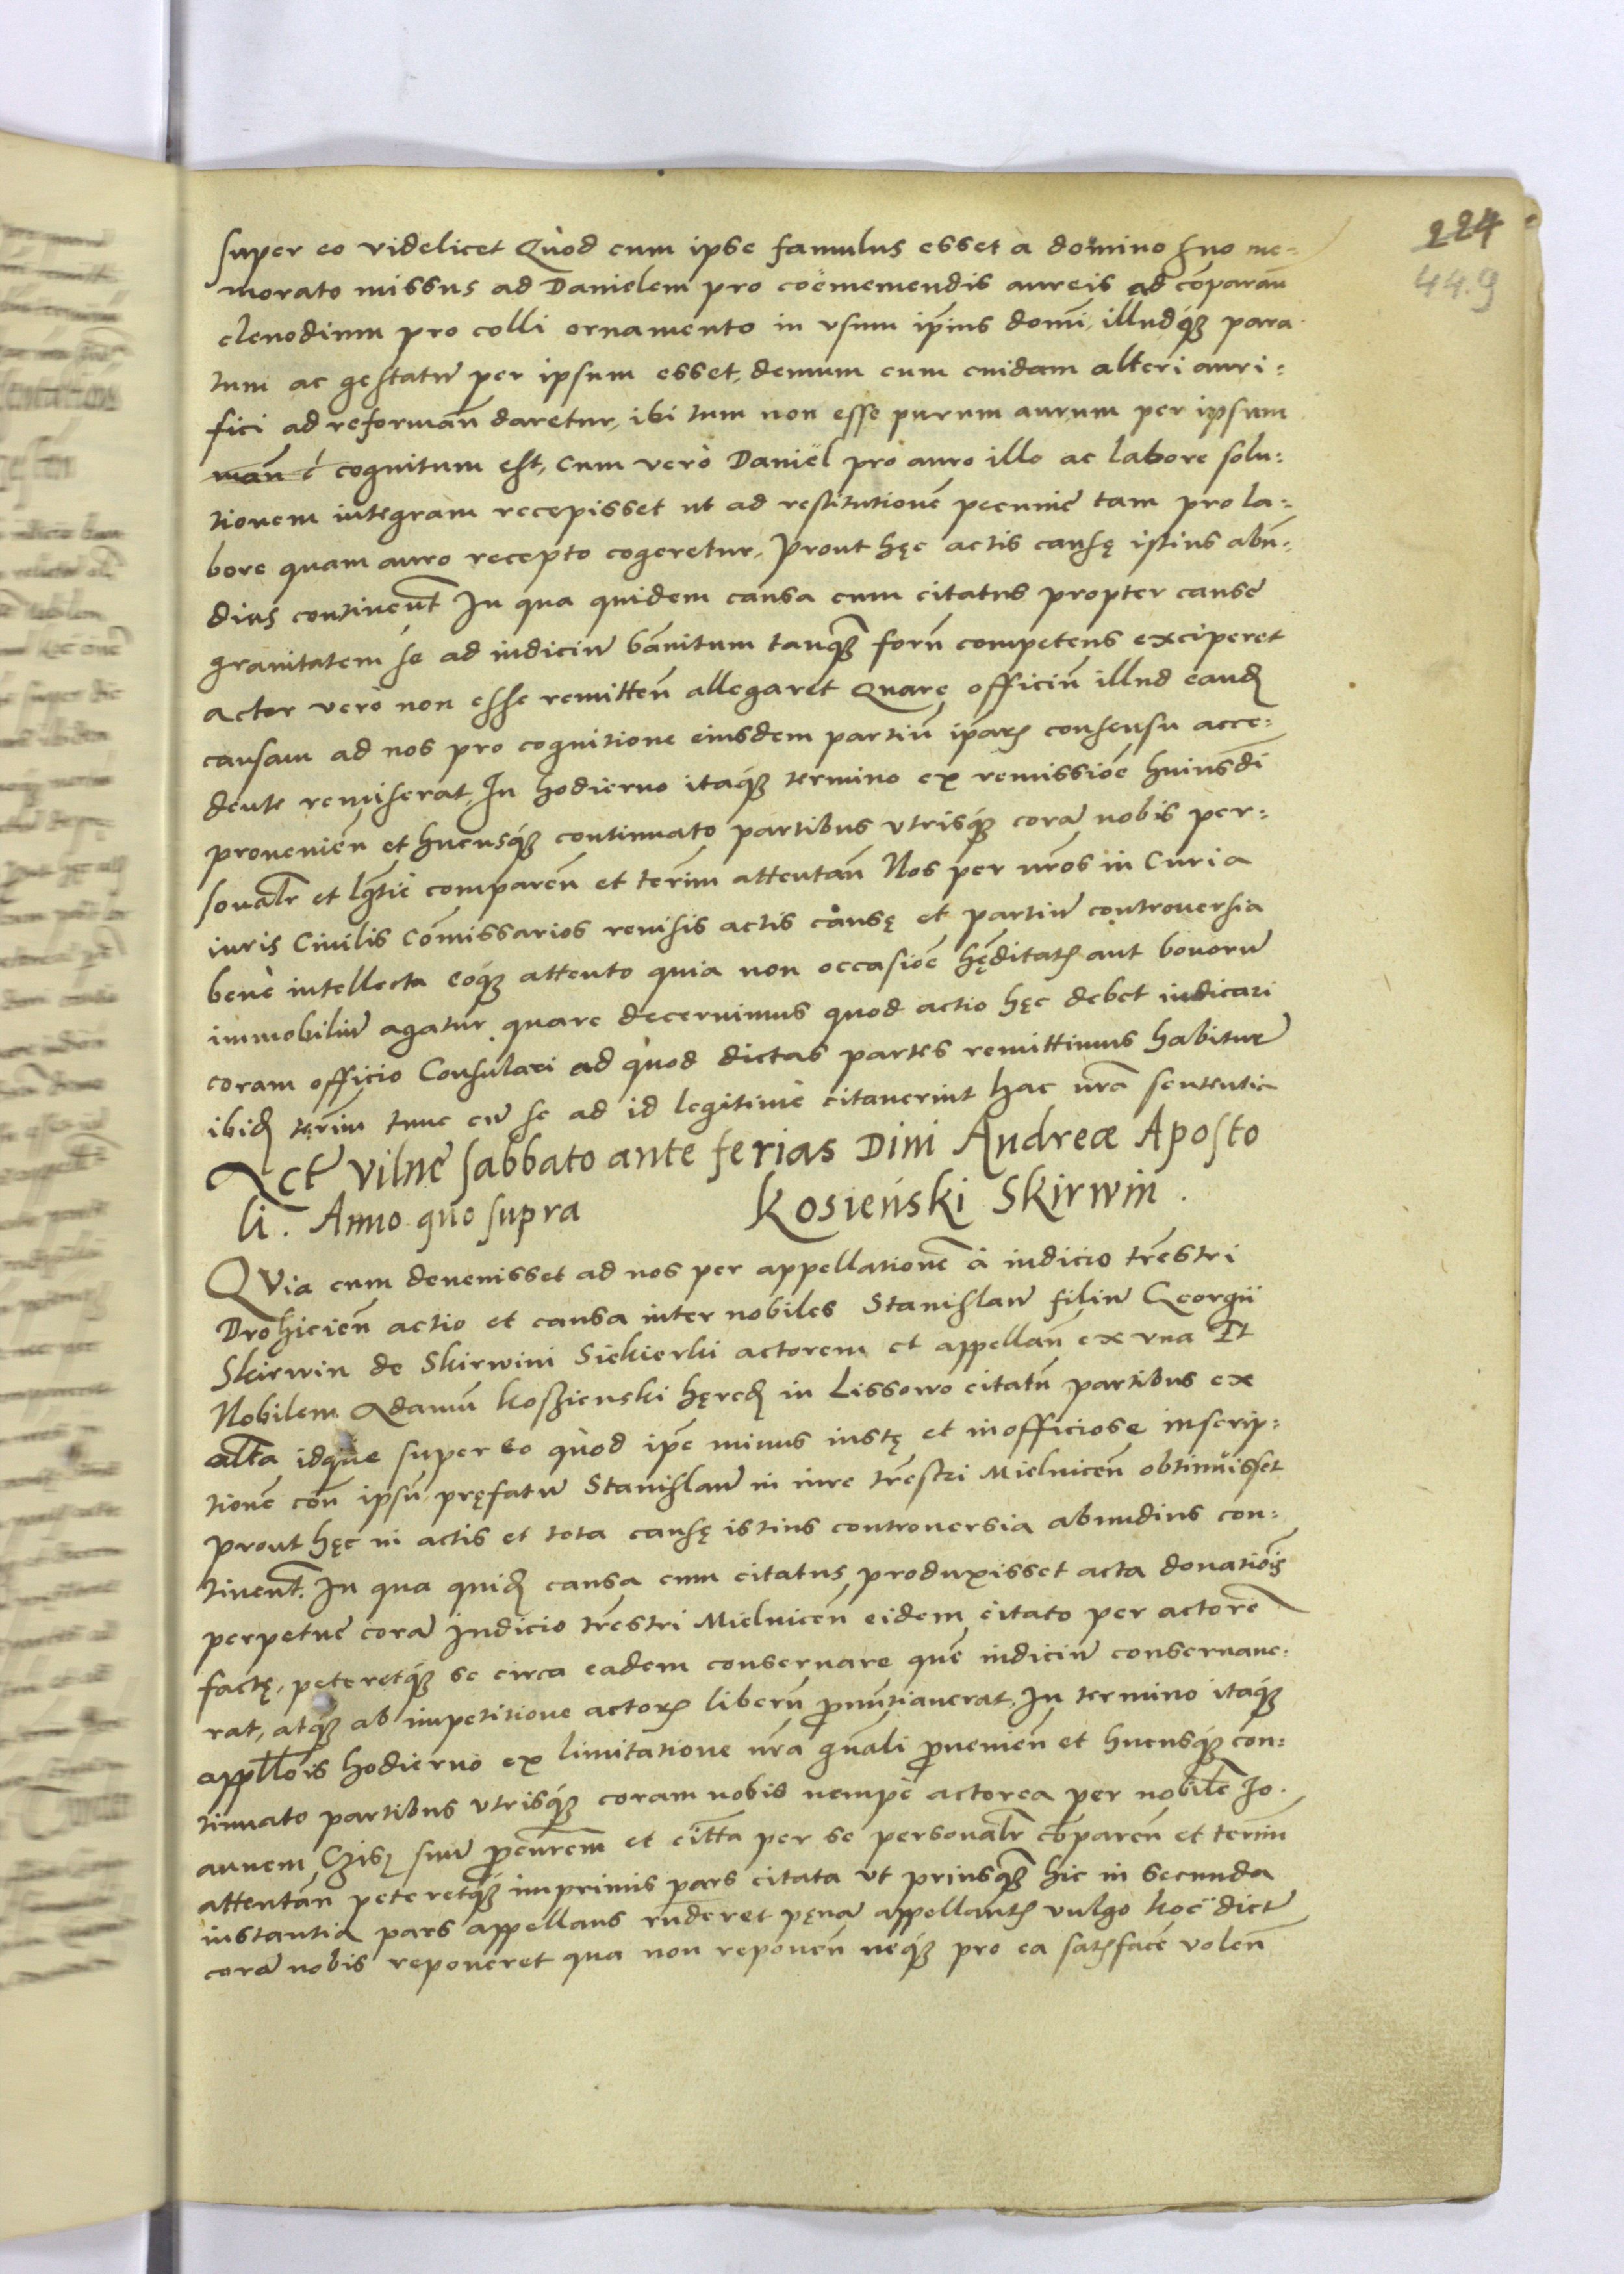 224
44.9
super eo videlicet Quòd cum ipse famulus esset à domino suo me-
morato missus ad Danielem pro coëmemendis aureis ad cōparan̄
clenodium pro colli ornamento in vsum ip̄ius domī, illudq́ꝫ para
tum ac gestatū per ipsum esset, demum cum cuidam alteri auri:
fici ad reforman̄ daretur, ibi tum non esse purum aurum per ipsum
cognitum est, Cum verò Daniel pro auro illo ac labore solu:
tionem integram recepisset ut ad restitutionē pecuniē tam pro la:
bore quam auro recepto cogeretur, Prout hęc actis causę istius abūn:
dius continent̄ In qua quidem causa cum citatus propter causē
grauitatem se ad iudiciū bānitum tanqꝫ forū competens exciperet
actor verò non esse remitten̄ allegaret Quare officiū illud eandꝫ
causam ad nos pro cognitione eiusdem partiū ip̄arꝫ consensu acce:
dente remiserat, In hodierno itaq́ꝫ termino ex remissiōe huiusdi
prouenien̄ et hucusq́ꝫ continuato partibus vtrisq́ꝫ corā nobis per:
sonal̄r et lḡtiē comparen̄ et term̄ attentan̄ Nos per nr̄os in Curia
iuris Ciuilis Cōmissarios reuisis actis causę et partiū controuersia
benè intellecta eóqꝫ attento quia non occasiōe hęditatꝫ aut bonorū
immobiliū agatur quare decernimus quod actio hęc debet iudicari
coram officio Consulari ad quod dictas partes remittimus habiturē
ibidꝫ term̄ tunc cū se ad id legitimè citauerint hac nrā sententia
Act̄ Vilnē sabbato ante ferias Diui Andreæ Aposto
li. Anno quo supra Kosieński Skirwin.
QVia cum deuenisset ad nos per appellationē à iudicio trēstri
Drohicien̄ actio et causa inter nobiles Stanislaū filiū Georgii
Skirwin de Skirwini Siekierki actorem et appellan̄ ex vna Et
Nobilem Adamū Koszienski hęredꝫ in Lissowo citatū partibus ex
alt̄a idque super eo quòd ip̄e minus iustę et inofficiose inscrip:
tionē con̄ ipsū pręfatū Stanislaū in iure trēstri Mielnicen̄ obtinuisset
Prout hęc in actis et tota causę istius controuersia abundius con:
tinent̄. In qua quidꝫ causa cum citatus produxisset acta donatiōis
perpetuē corā Iudicio trēstri Mielnicen̄ eidem citato per actorē
factę, peteretq́ꝫ se circa eadem conseruare quē iudiciū conseruaue:
rat, atq́ꝫ ab impetitione actorꝫ liberū pronūtiauerat, In termino itaq́ꝫ
appll̄ois hodierno ex limitatione nrā gn̄ali prouenien̄ et hucusq́ꝫ con:
tinuato partibus vtrisq́ꝫ coram nobis nempè actorea per nobilē Io.
annem suū procurem̄ et citt̄a per se personal̄r cōparen̄ et term̄
attentan̄ peteretq́ꝫ imprimis pars citata vt priusqꝫ hic in secunda
instantia pars appellans rn̄deret pęnā appellantꝫ vulgo koc̈ dictē
corā nobis reponeret qua non reponen̄ neq́ꝫ pro ea satꝫfacē volen̄